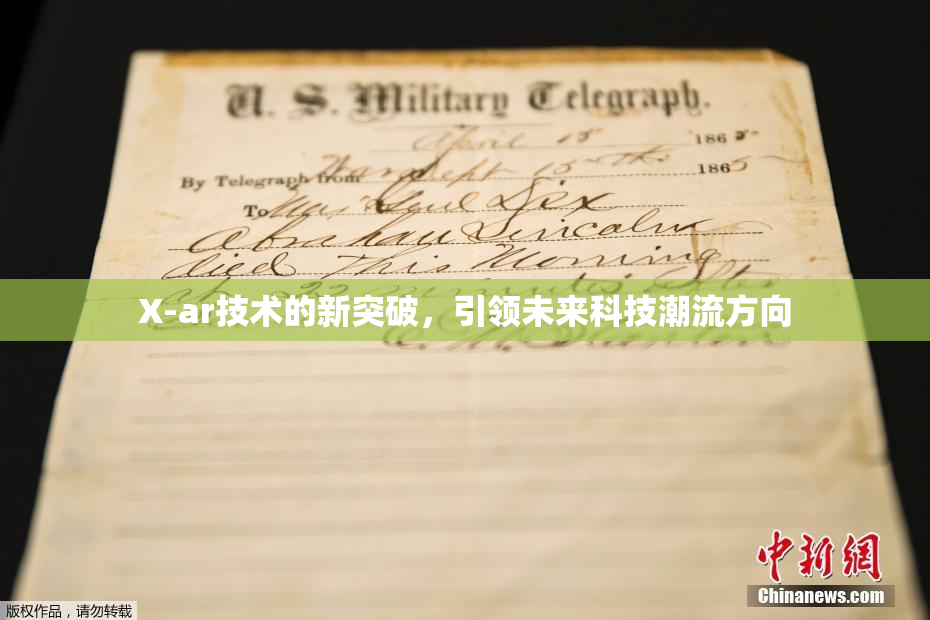 U. S. Military Telegraph.
April 15 1865
By Telegraph from War Dept 15th 1865
To Maj Genl Dix
Abraham Lincoln
died This Morning
22 minutes after
X-ar技术的新突破，引领未来科技潮流方向
中新网
Chinanews.com
版权作品，请勿转载